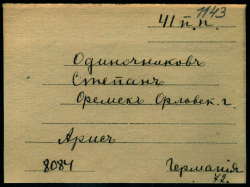 1143
41 п. п.
Одиночниковъ
Степанъ
Оремске Орловск. г.
Арисъ
8084 Германія
42.